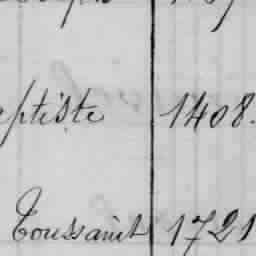 eptiste 1408.
Toussaint 1721